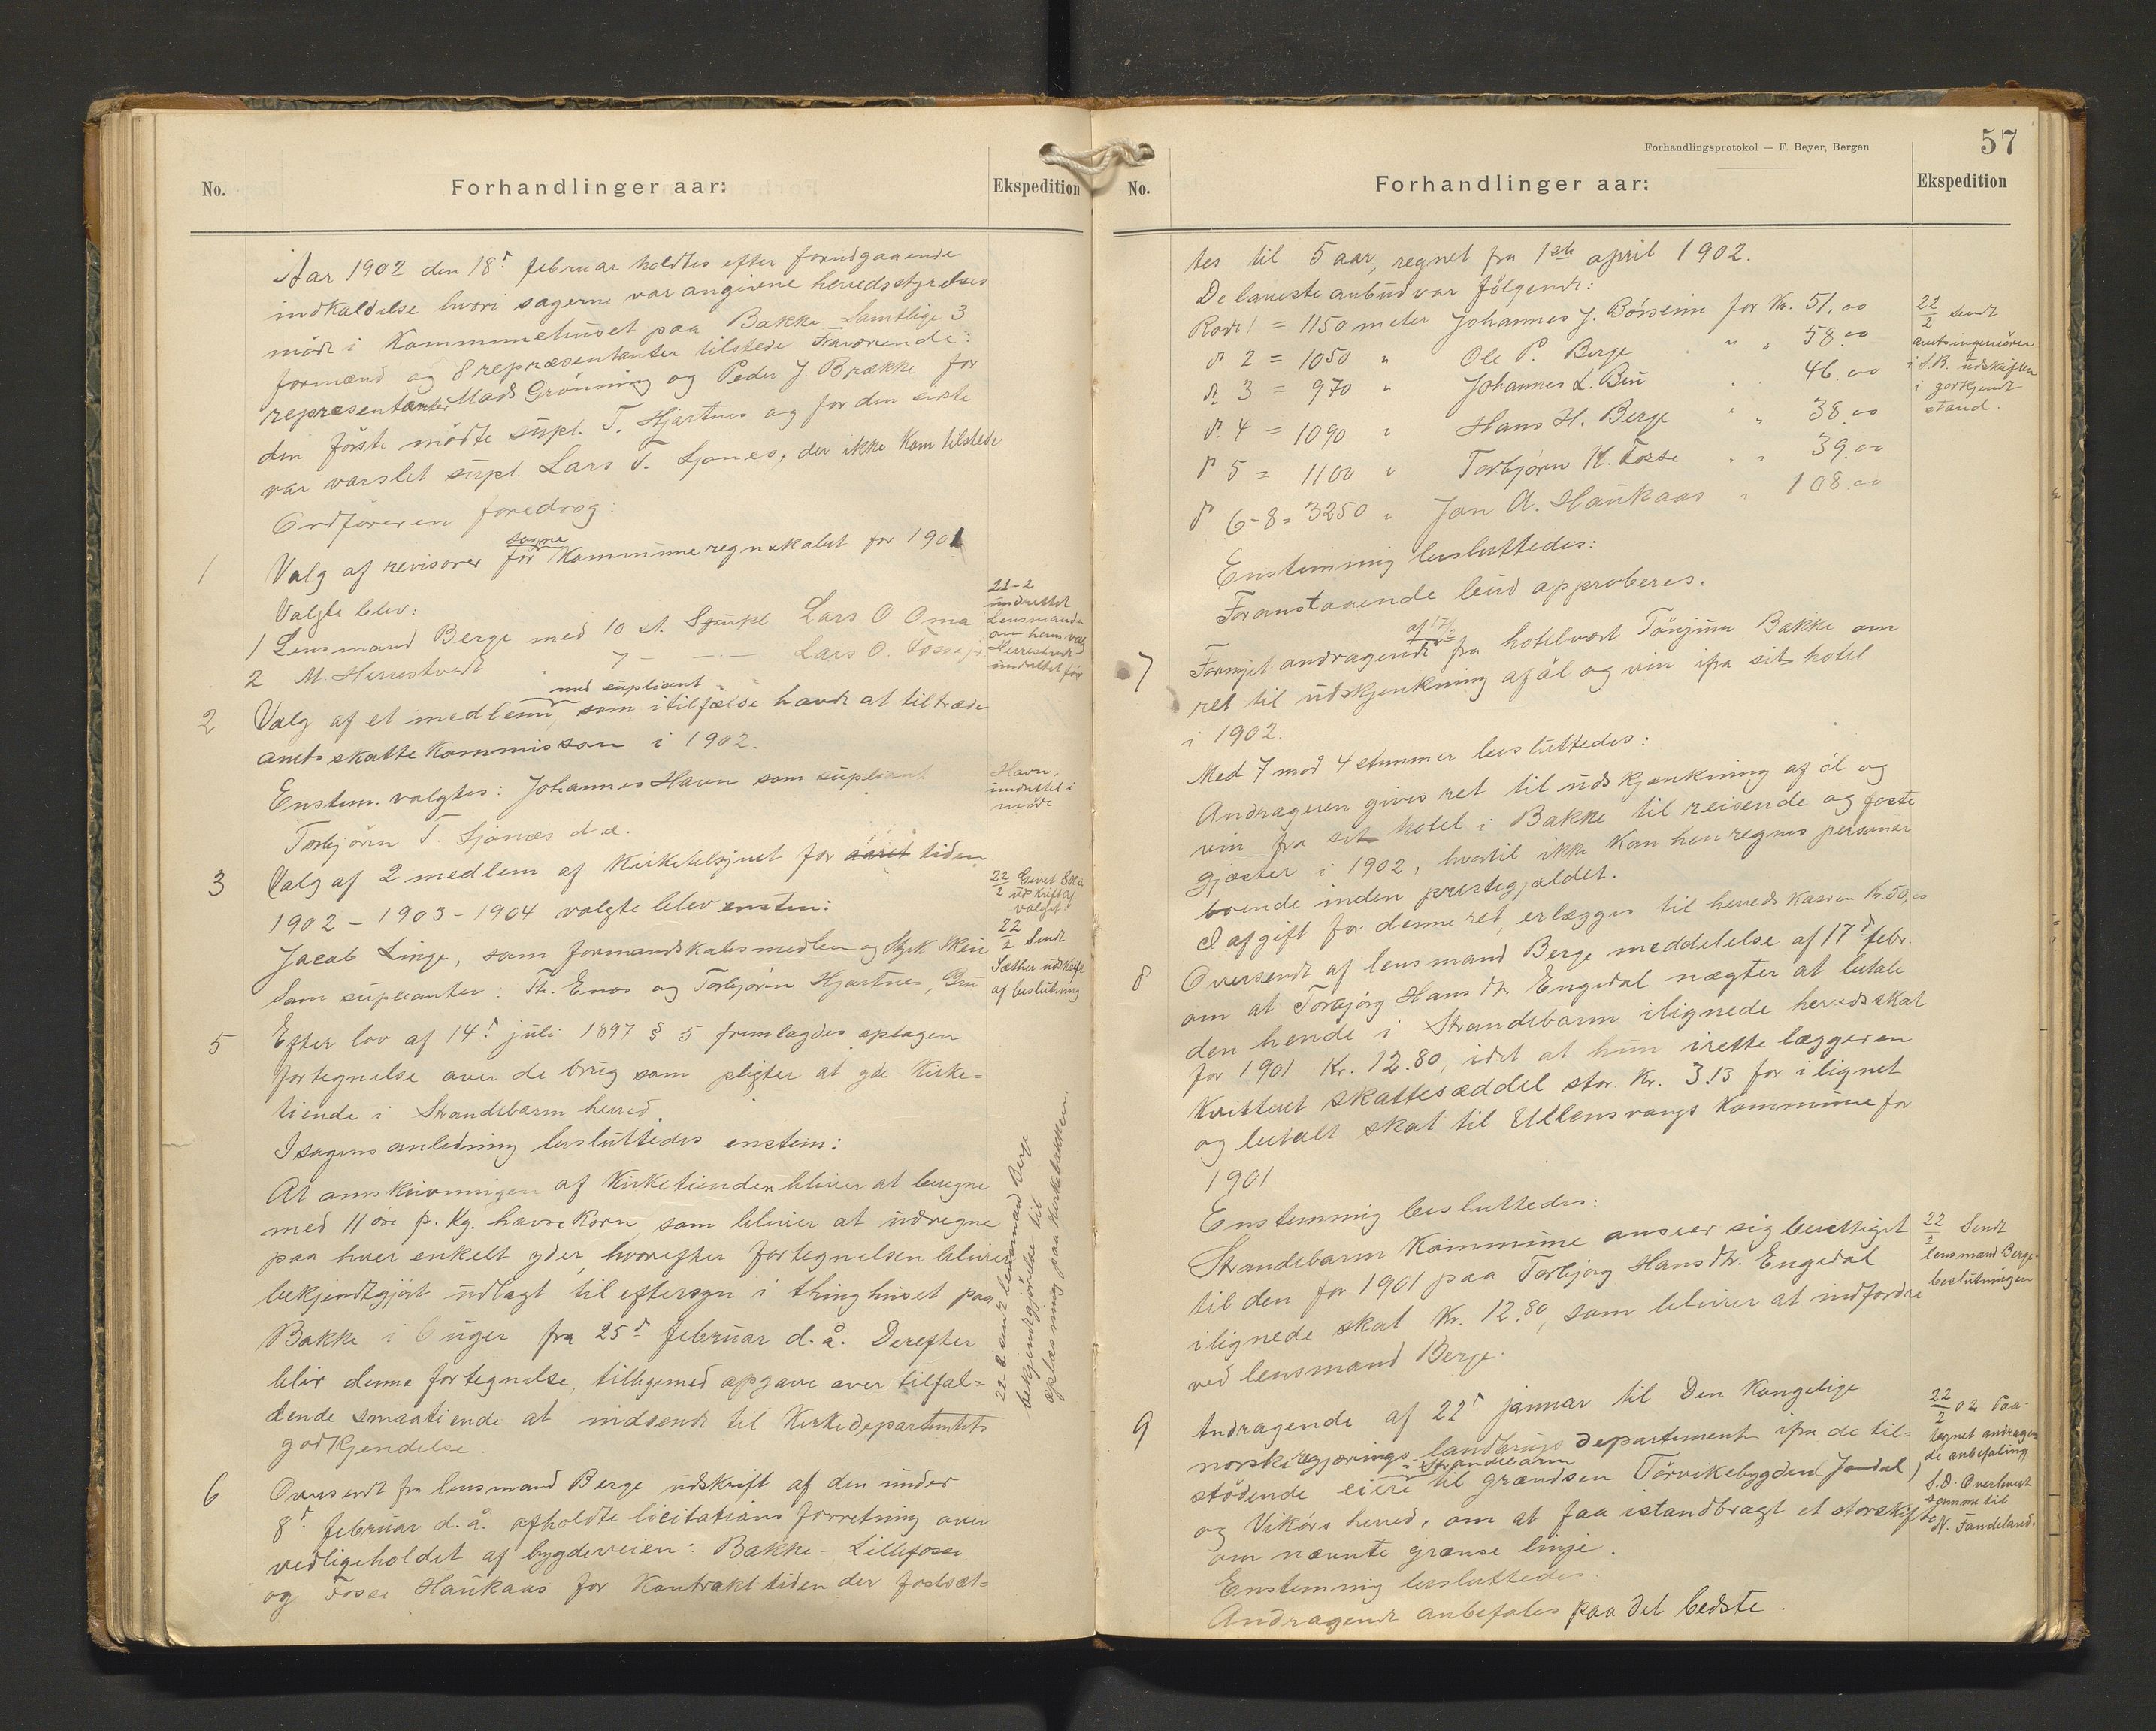 No.
Forhandlinger aar:
Ekspedition
Aar 1902 den 18d. februar holdtes efter forudgaaende
indkaldelse hvori sagerne var angivne herredsstyrelses
möde i Kommunehuset paa Bakke Samtlige 3
formænd og 8 repræsentanter tilstede Fraværende:
repræsentanter Mads Grönning og Peder J. Brække for
den förste mödte supl. T. Hjartnes og for den sidste
var varslet supl. Lars T. Sjones, der ikke kom tilstede
Ordföreren foredrog:
1 Valg af revisorer for sogne Kommuneregnskabet for 1901
Valgte blev:
1 Lensmand Berge med 10 st. Supl Lars O Oma
2 M. Herrestvedt " 7 — — Lars O. Fosse
21-2
undrettet
Lensmanden
om hans valg
Herrestvedt
undrettet för
2 Valg af et medlem med suplient, som i tilfælde havde at tiltræde
amtsskatte Kommisson i 1902.
Enstem. valgtes: Johannes Havn som suplient
Torbjörn T. Sjonæs d.æ.
Havn,
undrettet i
möde
3 Valg af 2 medlem af Kirketilsynet for aaret tiden
1902 - 1903 - 1904 valgte blev enstem:
Jacob Linge, som formandskabsmedlem og Styrk Skeie
Som supleanter: Th. Enæs og Torbjörn Hjartnes,
22/2 Givet Skeie
udskrift af
valget.
22/2 Sendt
Sæther udskrift
af beslutning
5 Efter lov af 14d. juli 1897 § 5 fremlagdes optagen
fortegnelse over de brug som pligter at yde Kirke=
tiende i Strandebarm herred.
I sagens anledning besluttedes enstem:
At omskrivningen af Kirketienden bliver at beregne
med 11 öre p. Kg. havre Korn, som bliver at udregne
paa hver enkelt yder, hvorefter fortegnelsen bliver
bekjendtgjört udlagt til eftersyn i thinghuset paa
Bakke i 6 uger fra 25d. februar d.å. Derefter
blir denne fortegnelse, tilligemed opgave over tilfal=
dende smaatiende at indsende til Kirkedepartemtets
godkjendelse.
22-2 sendt lensmand Berge
bekjendtgjörelse til
oplæsning paa Kirkebakken.
6 Oversendt fra lensmand Berge udskrift af den under
8d. februar d.å. afholdte licitations forretning over
vedligeholdet af bygdeveien: Bakke - Lillefosse
og Fosse Haukaas for Kontrakttiden der fastsæt=
Forhandlingsprotokol — F. Beyer, Bergen
57
No.
Forhandlinger aar:
Ekspedition
tes til 5 aar, regnet fra 1ste april 1902.
De laveste anbud var fölgende:
Rode 1 = 1150 meter Johannes J. Börsheim for Kr. 51.00
do 2 = 1050 " Ole P. Berge " " 58.00
do 3 = 970 " Johannes L. Bru " " 46.00
do 4 = 1090 " Hans H. Berge " " 38.00
do 5 = 1100 " Torbjörn K. Fosse " " 39.00
do 6-8 = 3250 " Jon A. Haukaas " 108.00
22/2 sendt
amtsingeniören
i S.B. udskriften
i godkjendt
stand.
Enstemmig besluttedes:
Foranstaaende bud approberes.
7 Fornyet andragende af 17/2 fra hotelvert Tönjum Bakke om
ret til udskjenkning af öl og vin ifra sit hotel
i 1902.
Med 7 mod 4 stemmer besluttedes:
Andrageren gives ret til udskjænkning af öl og
vin fra sit hotel i Bakke til reisende og faste
gjæster i 1902, hvortil ikke kan henregnes personer
boende inden prestegjældet.
I afgift for denne ret, erlægges til herredskassen Kr. 50,00
8 Oversendt af lensmand Berge meddelelse af 17d febr.
om at Torbjörg Hansdtr. Engedal nægter at betale
den hende i Strandebarm ilignede herredsskat
for 1901 Kr. 12.80, idet at hun irette lægger en
Kvitteret skattesæddel stor Kr. 3.13 for ilignet
og betalt skat til Ullensvangs Kommune for
1901
Enstemmig besluttedes:
Strandebarm Kommune anseer sig berettiget
til den for 1901 paa Torbjörg Hansdtr. Engedal
ilignede skat Kr. 12.80, som bliver at indfordre
ved lensmand Berge.
22/2 Sendt
lensmand Berge
beslutningen
9 Andragende af 22d januar til Den Kongelige
norske regjerings landbrugs departement ifra de til=
stödende eiere til grændsen Strandebarm Törvikebygden (Jondal)
og Vikörs herred, om at faa istandbragt et storskifte
om nævnte grænse linje.
Enstemmig besluttedes:
Andragende anbefales paa det bedste.
22/2 02 Paa-
tegnet andragen
de anbefaling
S.D. Overlevert
samme til
N. Tandeland.